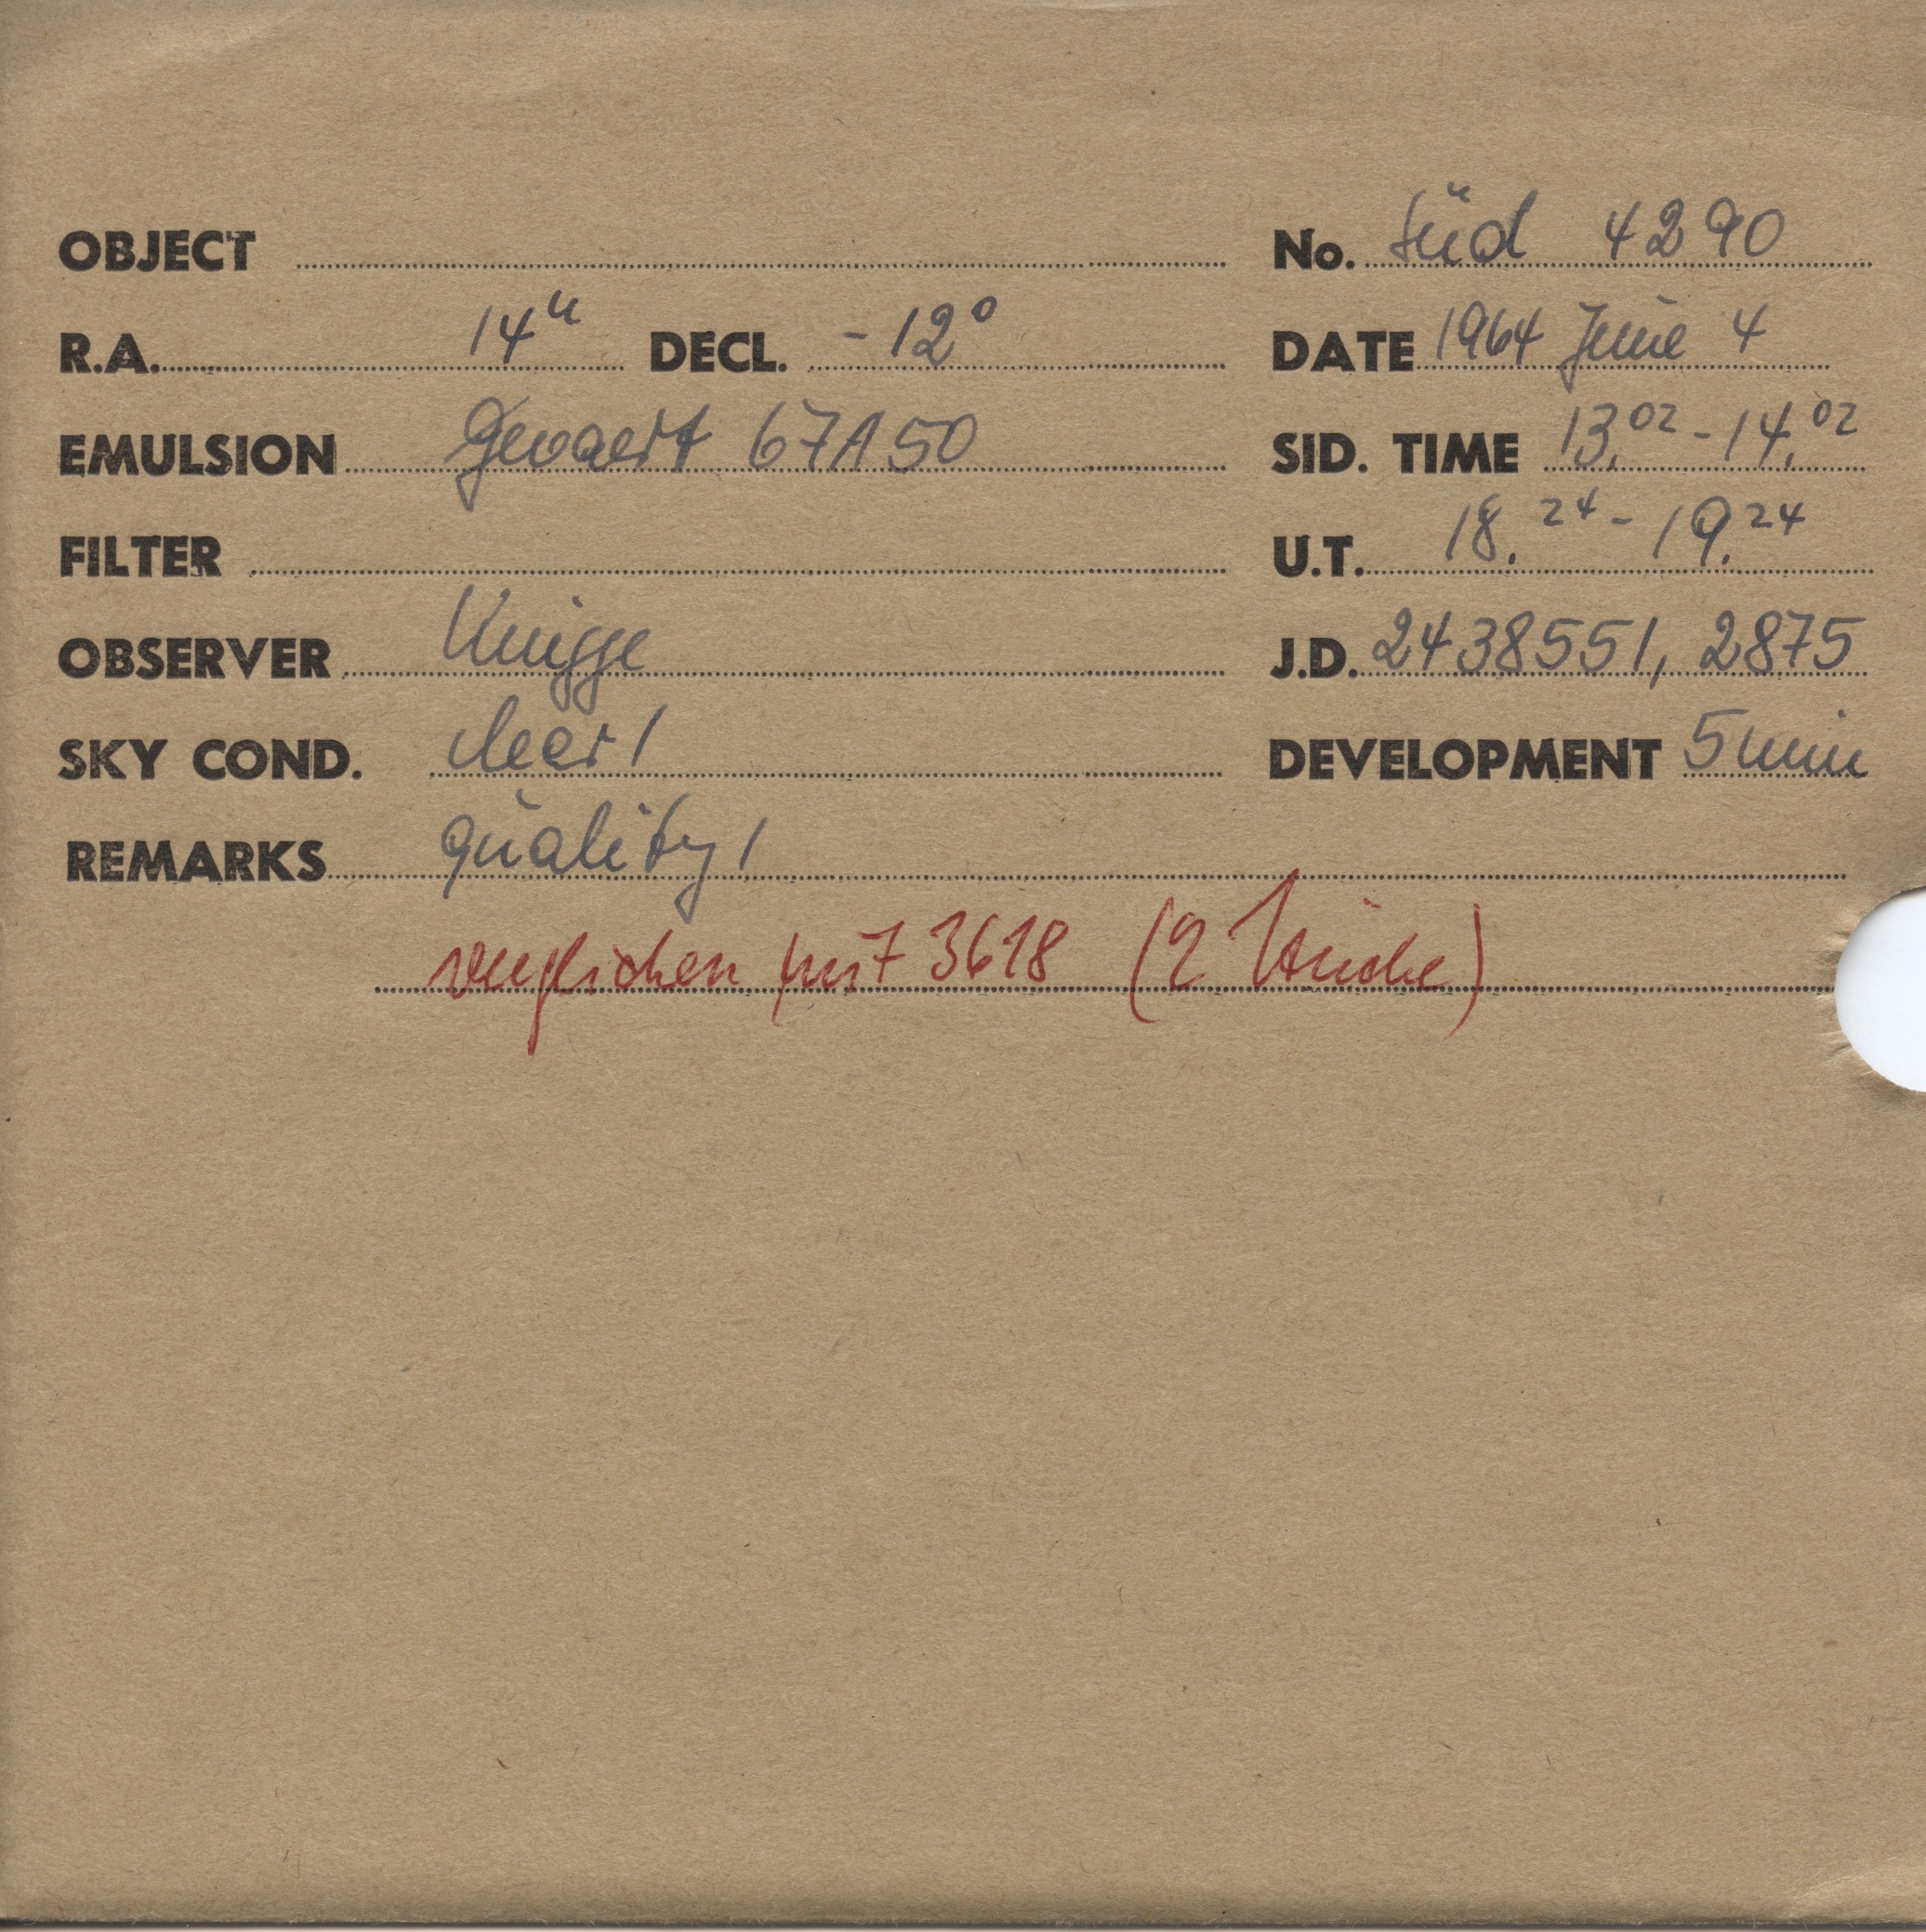 OBJECT No. Süd 4290
R.A. 14h DECL. -12°
DATE 1964 June 4
EMULSION Gevaert 67A50
SID. TIME 13.02 - 14.02
FILTER
U.T. 18.24 - 19.24
OBSERVER Knigge
J.D. 2438551,2875
SKY COND. clear 1
DEVELOPMENT 5 min
REMARKS quality 1
verglichen mit 3618 (2 Striche)